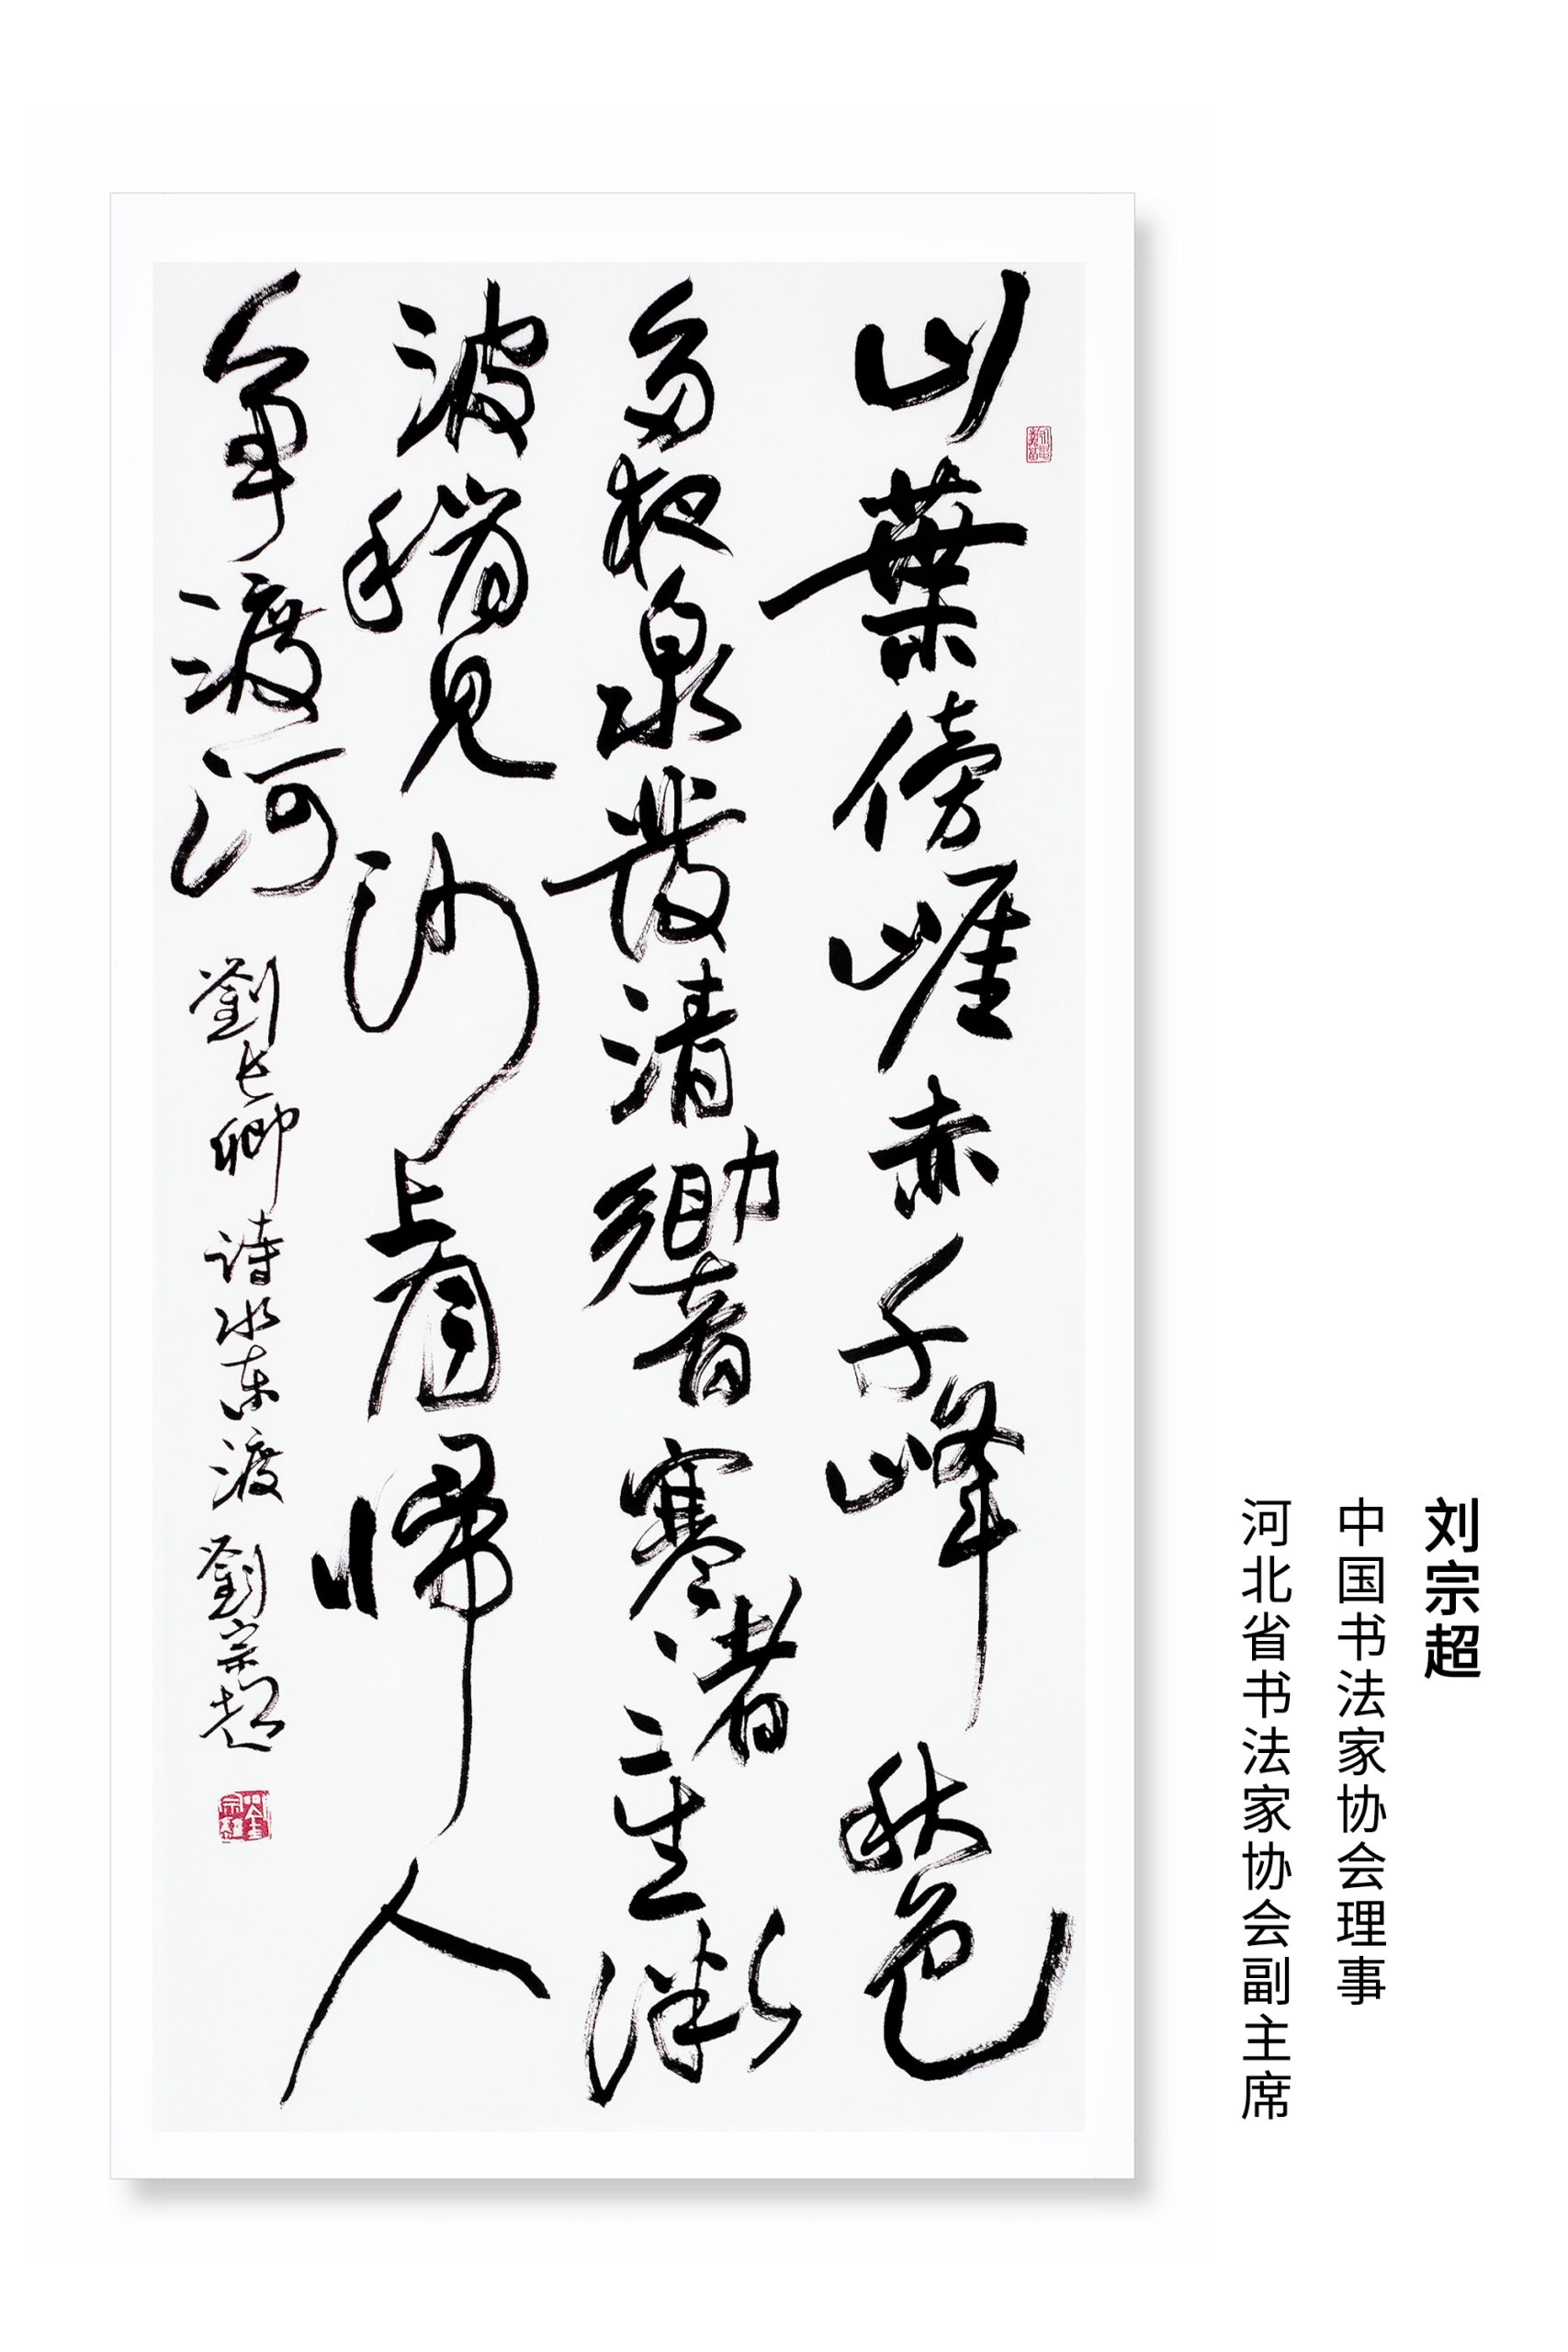 刘宗超
中国书法家协会理事
河北省书法家协会副主席
山葉傍崖赤千峰秋色
多夜泉發清響寒渚生微
波稍見沙上月帰人
争渡河
劉長卿詩水东渡 劉宗超